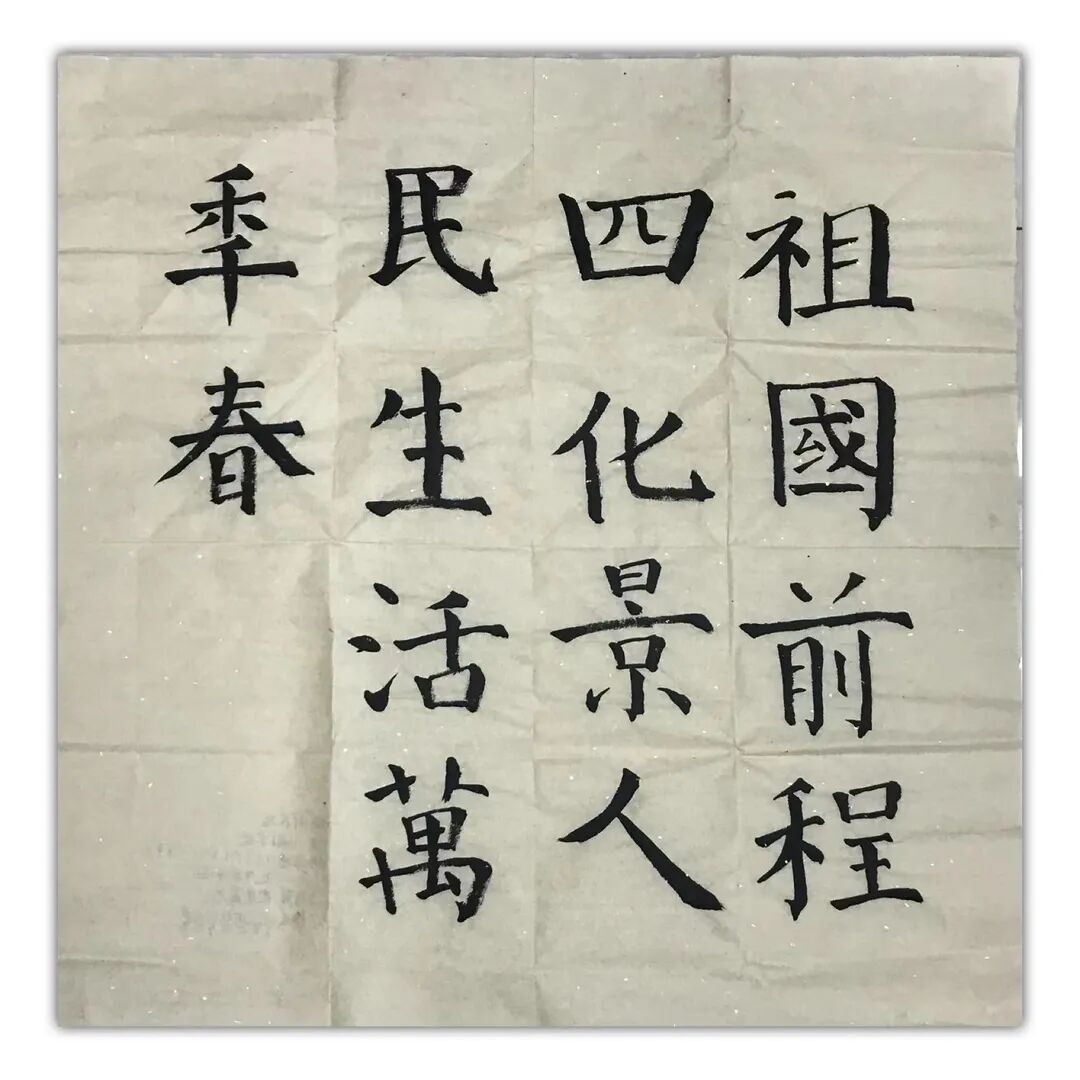 祖國前程
四化景人
民生活萬
季春